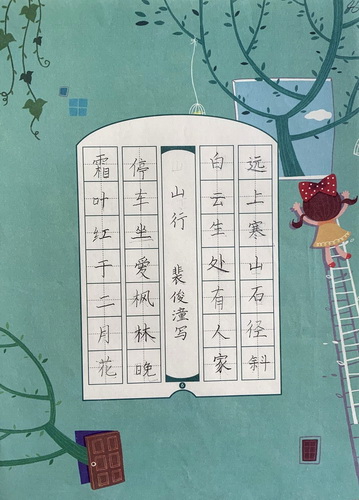 远上寒山石径斜
白云生处有人家
山行 裴俊潼写
停车坐爱枫林晚
霜叶红于二月花